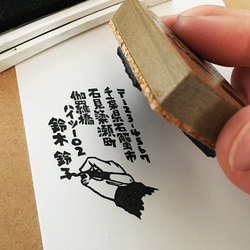 〒123-4567
千葉県石蟹市
石見簗瀬町
伽羅橋
ハイツ-02
鈴木 鈴子